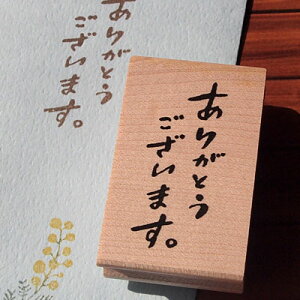 ありがとう
ございます。
ありがとう
ございます。